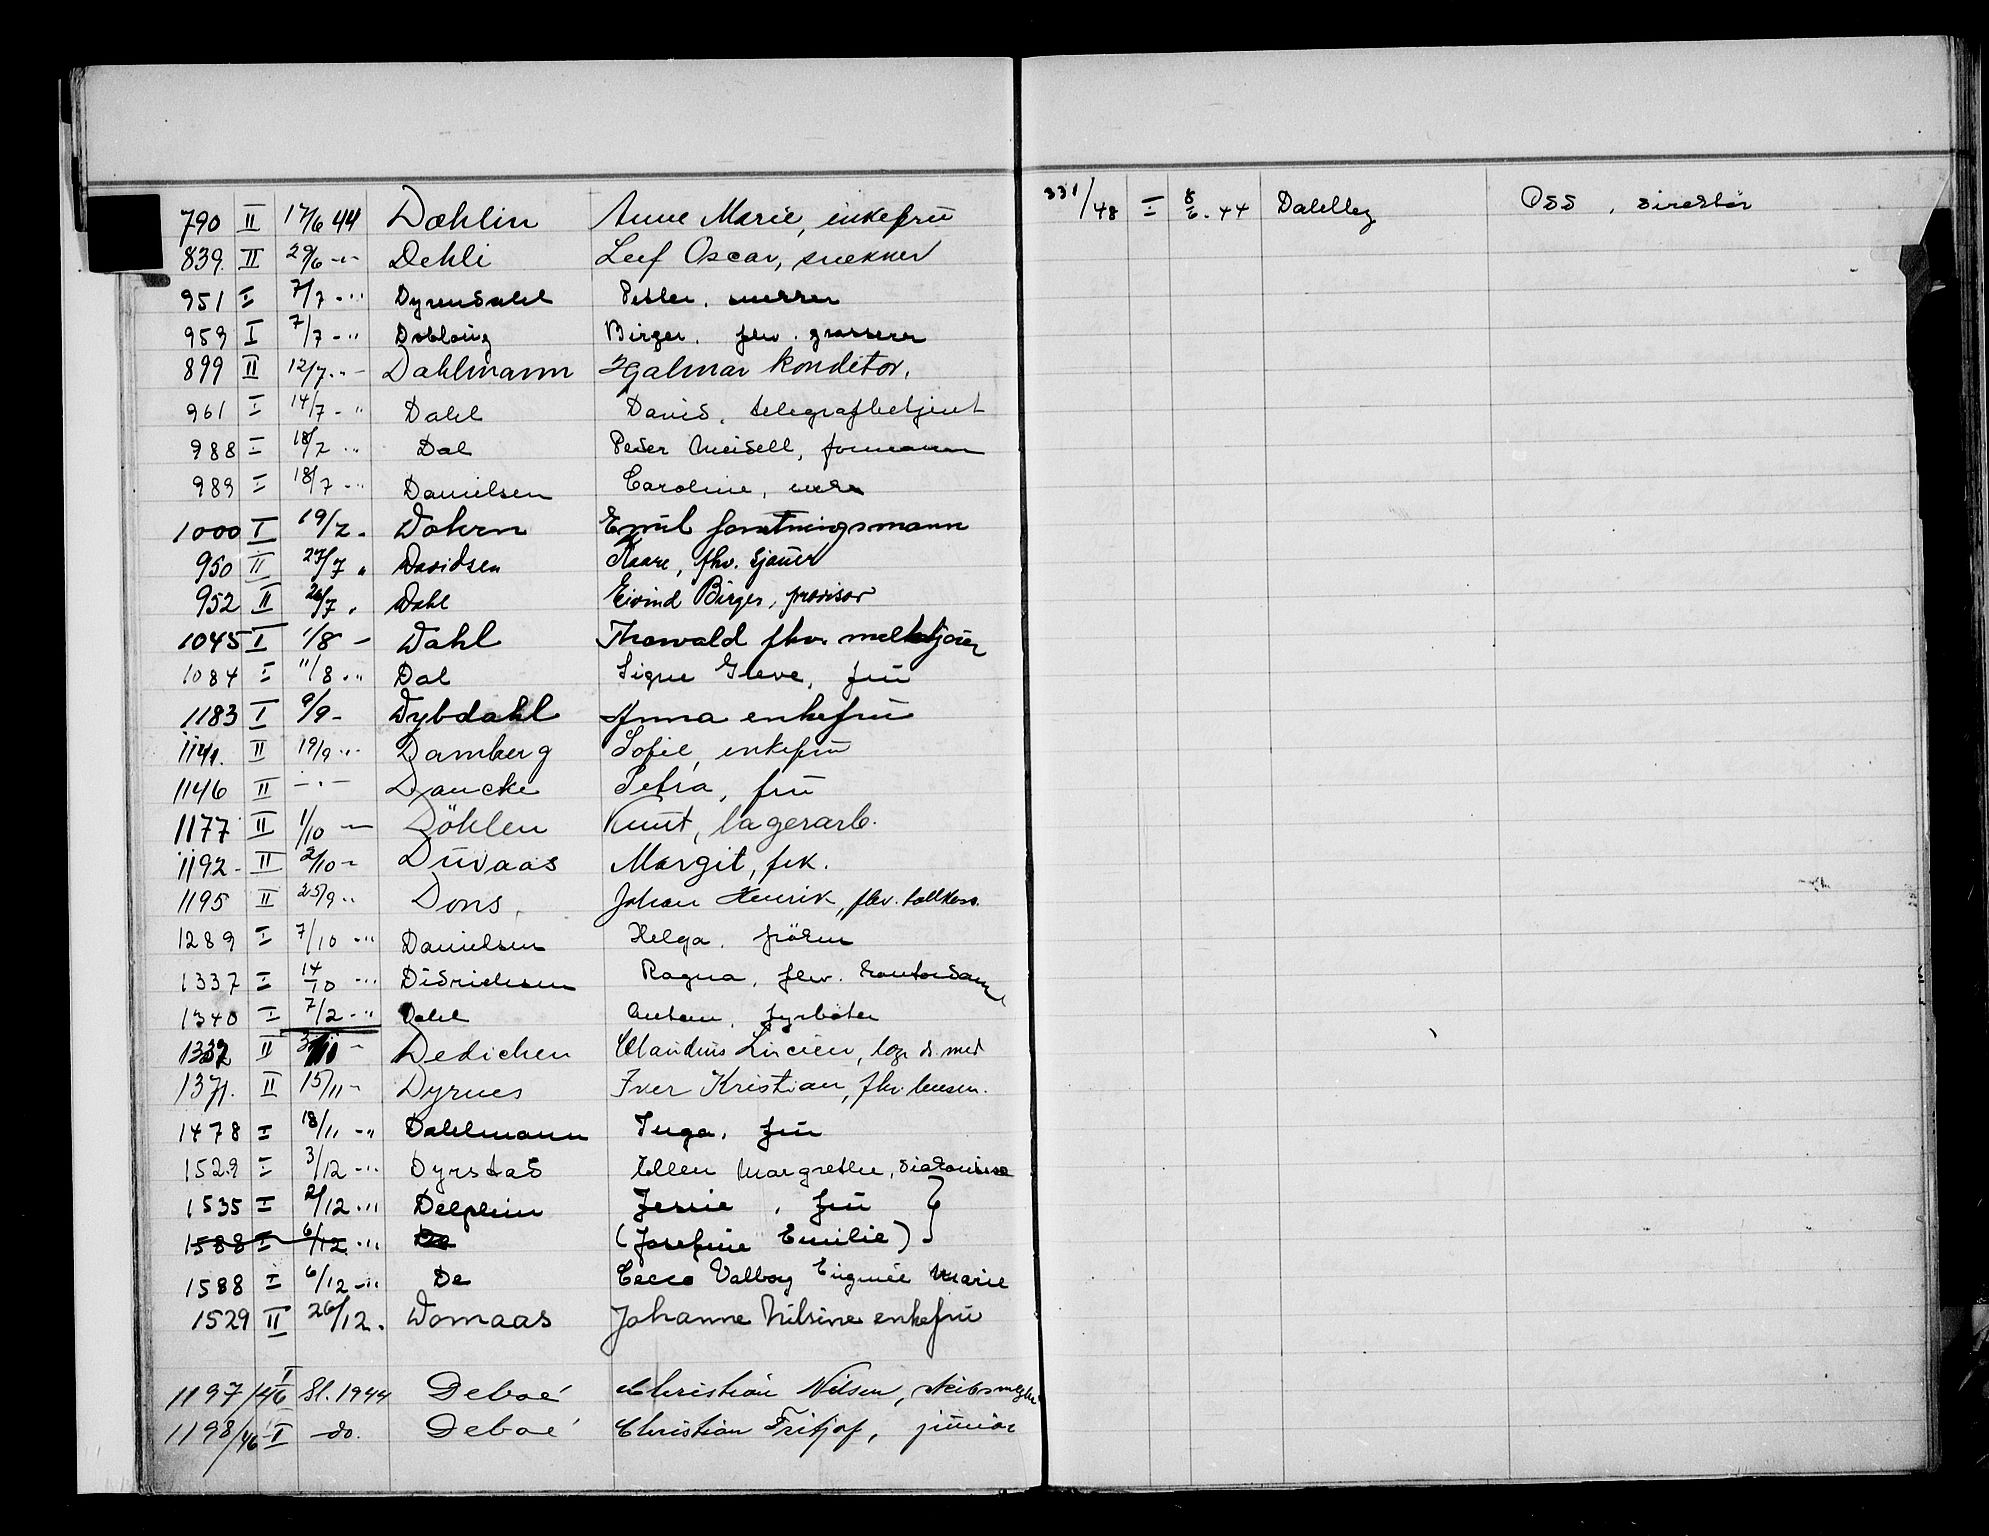 790 II 17/6 44 Dæhlin Anne Marie, enkefrü
839. II 29/6 -"- Dehli Leif Oscar, snekker
951 I 7/7 -"- Dyrendahl Petter, snekker
959 I 7/7 -"- Dobloug Birger, fhv. grosserer
899 II 12/7 -"- Dahlmann Hjalmar konditor.
961 I 14/7 -"- David, telegrafbetjent Dahl
988 I 18/7 -"- Dal Peder Meidell, formann
989 I 18/7 -"- Danielsen Caroline, enke
1000 I 19/7 - Dohrn Emil forretningsmann
950 II 27/7 " Davidsen Kaare, fhv. sjauer
952 II 26/7 " Dahl Eivind Birger, provisor
1045 I 1/8 - Dahl Thorvald fhv.
1084 I 11/8 -"- Dal Signe Greve, frü
1183 I 9/9 - Dybdahl Anna enkefrü
1141. II 19/9 -"- Damberg Sofie, enkefrü
1146 II -"- Dancke Petra, frü
1177 II 1/10 - Döhlen Knut, lagerarb.
1192 - II 2/10 - Düvaas Margit, frk.
1195 II 25/9 -"- Dons, Johan Henrik, fhv. tollkass.
1289 I 7/10 -"- Danielsen Helga, fröken
1337 I 14/10 -"- Didrichsen Ragna, fhv. kontordame
1340 I 7/2 -"- Dahl Anton, fyrböter
1332 II Dedichen Claudius Lucien, lege dr. med
1371. II 15/11 - Dyrnes Iver Kristian, fhv.
1478 I 18/11 -"- Dahlmann Inga, frü
1529 I 3/12 -"- Dyrstad Ellen Margrethe, diakonisse
1535 I 2/12 -"- Delphin Jessie, frü }
1588 I 6/12 -"- De (Josefine Emilie) }
1588 I 6/12 -"- De Cecco Valboy Eugenie Marie
1529 II 26/12. Domaas Johanne Nilsine enkefrü
1197/46 I Sl. 1944 Deboé Christian Nilsen, skibsmegler
1198/46 I -do. Deboé Christian Fritjof, junior
331/48 I 8/6. 44 Dahlley OSS, direktör